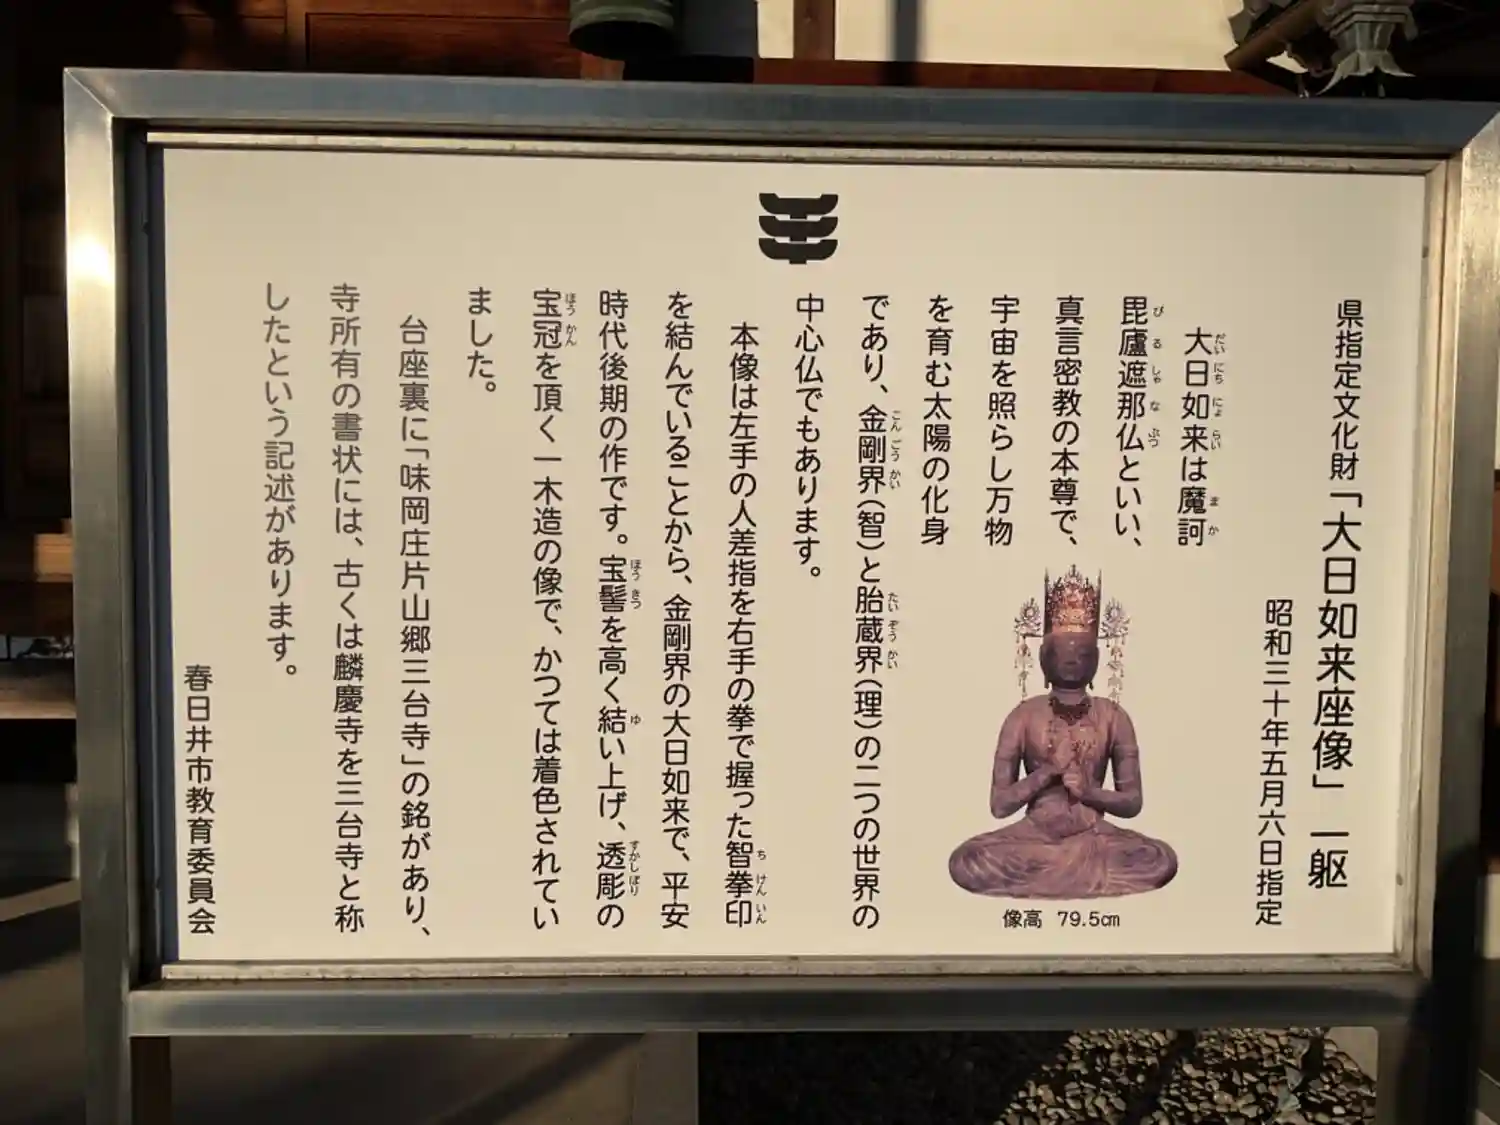 県指定文化財「大日如来座像」一躯
昭和三十年五月六日指定
大日如来は魔訶
だいにちにょらい まか
毘廬遮那仏といい、
びるしゃなぶつ
真言密教の本尊で、
宇宙を照らし万物
を育む太陽の化身
であり、金剛界(智)と胎蔵界(理)の二つの世界の
こんごうかい たいぞうかい
中心仏でもあります。
本像は左手の人差指を右手の拳で握った智拳印
ちけんいん
を結んでいることから、金剛界の大日如来で、平安
時代後期の作です。宝髻を高く結い上げ、透彫の
ほうきつ ゆ すかしぼり
宝冠を頂く一木造の像で、かつては着色されてい
ほうかん
ました。
台座裏に「味岡庄片山郷三台寺」の銘があり、
寺所有の書状には、古くは麟慶寺を三台寺と称
したという記述があります。
春日井市教育委員会
像高 79.5cm